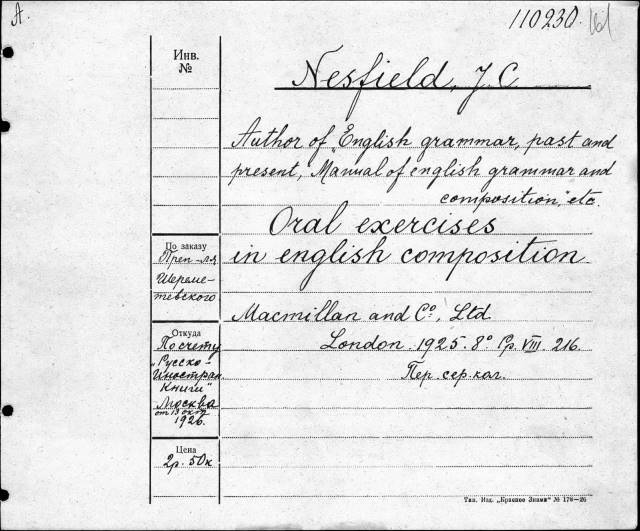 A.
110230.
Инв.
№
Nesfield, J. C.
Author of „English grammar, past and
present, „Manual of english grammar and
composition," etc.
Oral exercises
in english composition
По заказу
Преп-ля
Шереме-
тевского
Macmillan and Cº, Ltd.
Откуда
По счету
„Русско-
Иностран.
Книги"
Москва
от 13 окт.
1926.
London. 1925. 8º. Pp. VIII. 216.
Пер. сер. кол.
Цена
2р. 50к
Тип. Изд. „Красное Знамя" № 178—26